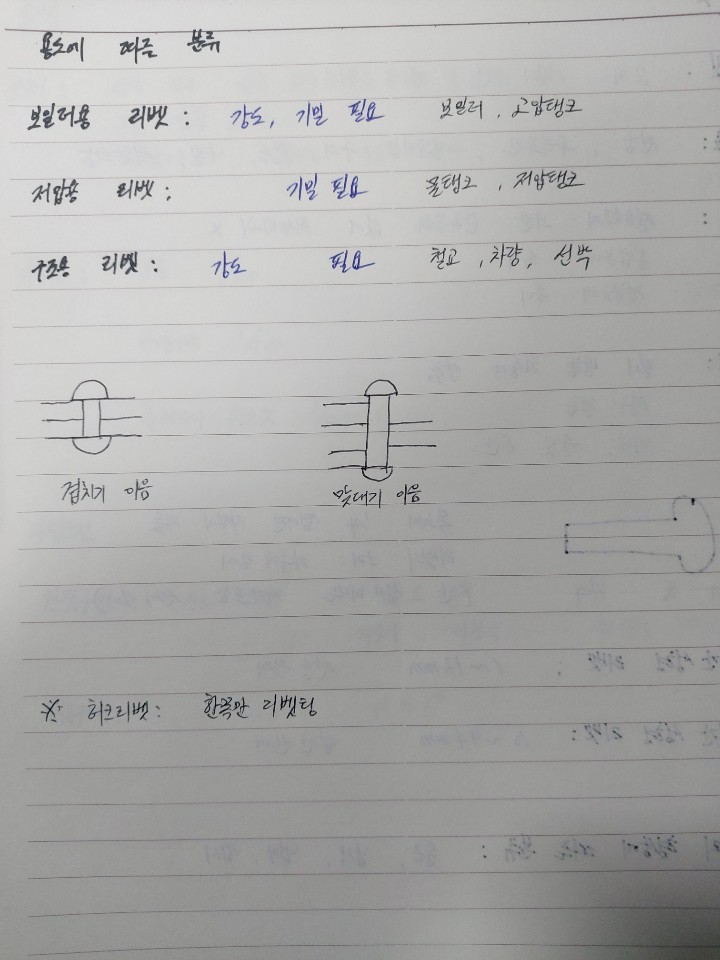 용도에 따른 분류
보일러용 리벳 : 강도, 기밀 필요 보일러, 고압탱크
저압용 리벳 : 기밀 필요 물탱크, 저압탱크
구조용 리벳 : 강도 필요 철교, 차량, 선박
겹치기 이음 맞대기 이음
※ 허크리벳 : 한쪽만 리벳팅